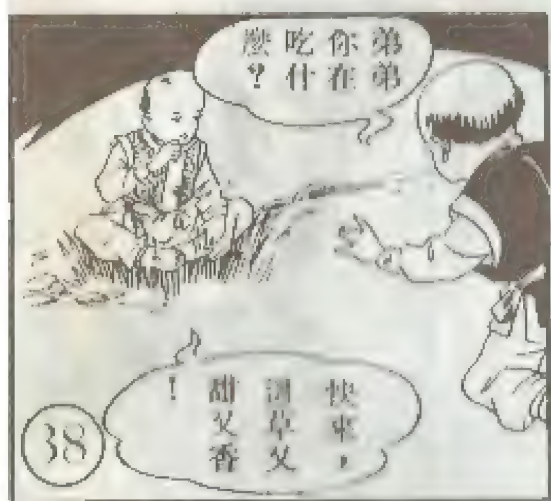 弟弟
你在
吃什
麼？
快來，
草又
甜又香
！
38